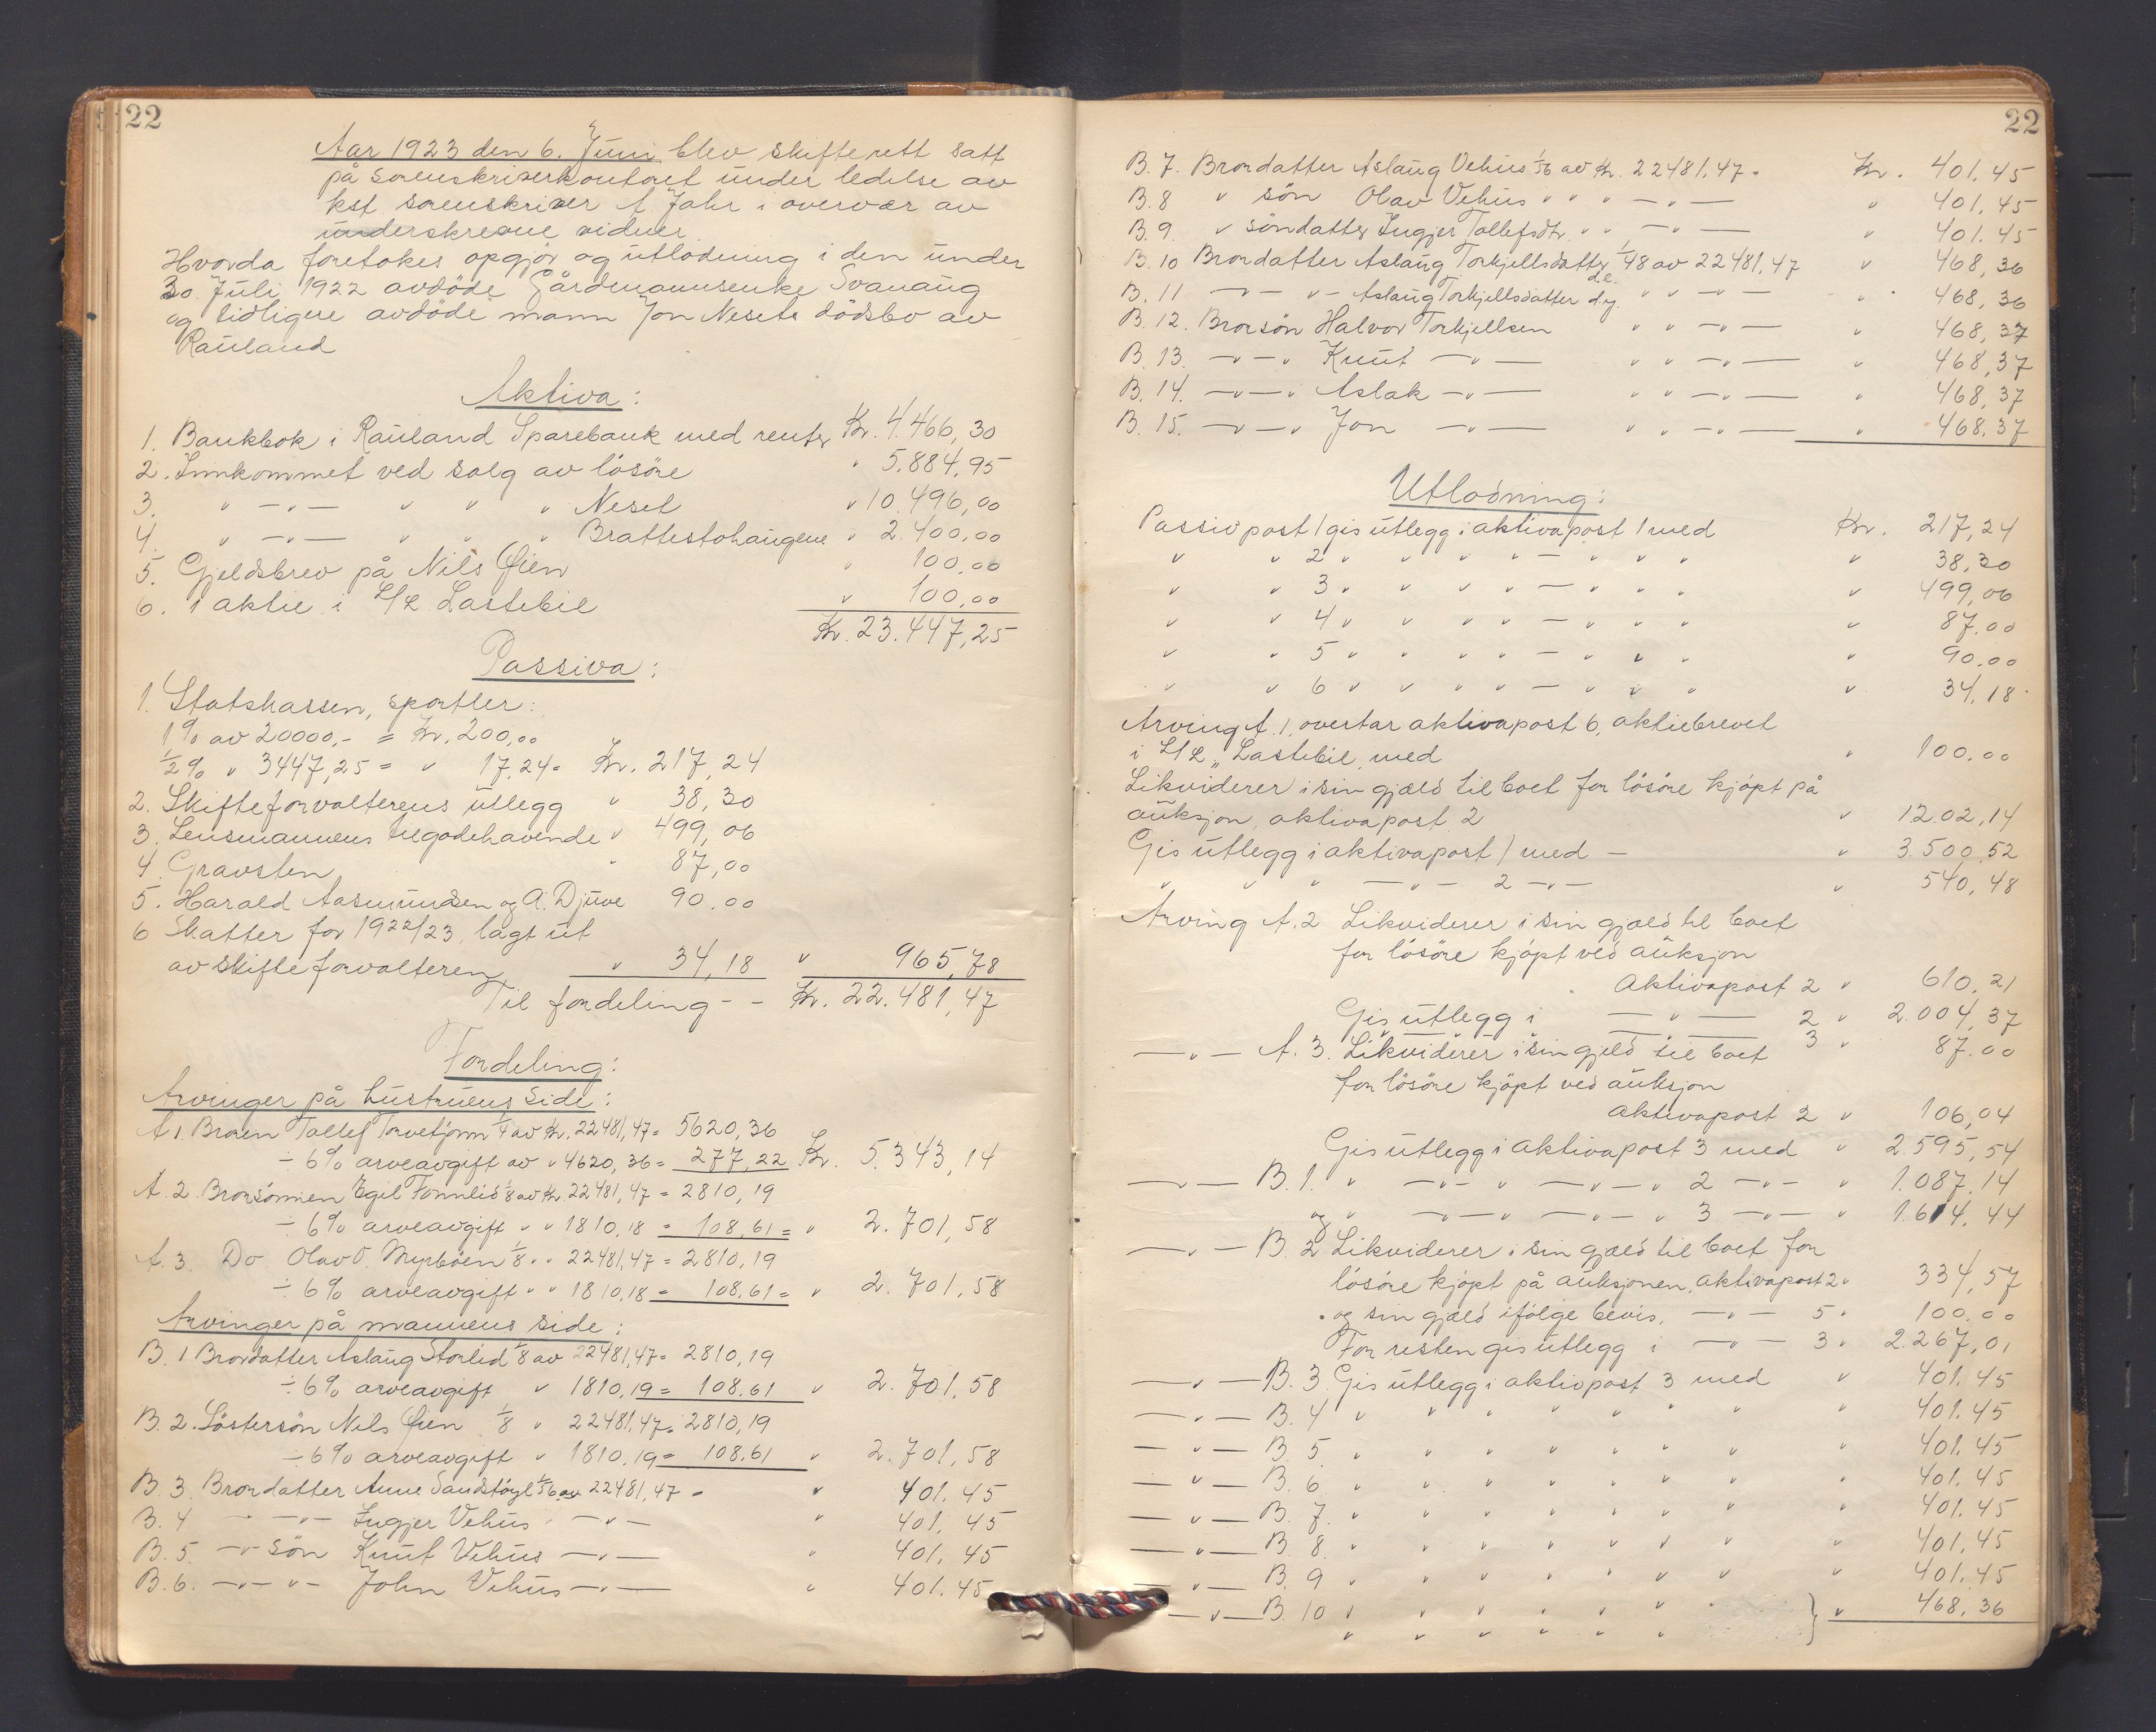 22
Aar 1923 den 6. Juni blev skifterett satt
på sorenskriverkontoret under ledelse av
kst sorenskriver A Jahr i overvær av
underskrevne vidner
Hvorda foretokes opgjör og utlodning i den under
30. Juli 1922 avdöde Gårdmannsenke Svanaug
og tidligere avdöde mann Jon Nesets dödsbo av
Rauland
Aktiva:
1. Bankbok i Rauland Sparebank med renter Kr. 4.466,30
2. Innkommet ved salg av lösöre " 5.884,95
3. " —"— " " " Neset " 10.496,00
4. " —"— " " " Brattestohaugene " 2.400,00
5. Gjeldsbrev på Nils Öien " 100,00
6. 1 aktie i L/L Lastebil " 100,00
Kr. 23.447,25
Passiva:
1. Statskassen, sportler:
1% av 20000,- = Kr. 200,00
½% " 3447,25 = " 17,24 = Kr. 217,24
2. Skifteforvalterens utlegg " 38,30
3. Lensmannens tilgodehavende " 499,06
4. Gravsten " 87,00
5. Harald Aasmundsen og A. Djuve 90.00
6 Skatter for 1922/23 lagt ut
av skifteforvalteren " 34,18 " 965,78
Til fordeling - - Kr. 22.481,47
Fordeling:
Arvinger på hustruens side:
A 1. Broren Tallef Torvetjonn ¼ av Kr. 22481,47 = 5620,36
÷ 6% arveavgift av " 4620,36 = 277,22 Kr. 5.343,14
A. 2. Brorsönnen Egil Fonnlid 1/8 av Kr. 22481,47 = 2810,19
÷ 6% arveavgift " " 1810,18 = 108,61 = " 2.701,58
A. 3. Do Olav O. Myrböen 1/8 " " 22481,47 = 2810,19
÷ 6% arveavgift " " 1810,18 = 108,61 = " 2.701,58
Arvinger på mannens side:
B. 1 Brordatter Aslaug Storlid 1/8 av 22481,47 = 2810,19
÷ 6% arveavgift " 1810,19 = 108,61 " 2.701,58
B. 2. Söstersön Nils Öien 1/8 " 22481,47 = 2810,19
÷ 6% arveavgift " 1810,19 = 108,61 " 2.701,58
B. 3. Brordatter Anne Sandstöyl 1/56 av 22481,47 = " 401,45
B. 4 — —"— Ingjer Vehus " —"— " 401,45
B. 5. —"— sön Knut Vehus —"— " 401,45
B. 6. —"— "— John Vehus —"— " 401,45
22
B. 7. Brordatter Aslaug Vehus 1/56 av Kr. 22481,47 = Kr. 401,45
B. 8 " sön Olav Vehus " " " —"— " 401,45
B. 9. " söndatter Ingjer Tallefsdtr. " " —"— " 401.45
B. 10 Brordatter Aslaug Torkjellsdatter 1/48 av 22481,47 " 468,36
B. 11 —"— "— Aslaug Torkjellsdatter d.y. " " —"— " 468,36
d.e.
B. 12. Brorsön Halvor Torkjellsen " " —"— " 468,37
B. 13. —"—" Knut —"— " " —"— " 468,37
B. 14. —"—" Aslak —"— " " —"— " 468,37
B. 15. —"—" Jon —"— " " —"— " 468,37
Utlodning:
Passivpost 1 gis utlegg i aktivapost 1 med Kr. 217,24
" " 2 " " " " — " " " " 38,30
" " 3 " " " " — " " " " 499,06
" " 4 " " " " — " " " " 87.00
" " 5 " " " " — " " " " 90.00
" " 6 " " " " — " " " " 34,18
Arving A. 1, overtar aktivapost 6, aktiebrevet
i L/L „Lastebil, med " 100.00
Likviderer i sin gjæld til boet for lösöre kjöpt på
auksjon, aktivapost 2 " 12.02,14
Gis utlegg i aktivapost 1 med — " 3.500,52
" " " —"— 2 —"— " 540,48
Arving A. 2 Likviderer i sin gjæld til boet
for lösöre kjöpt ved auksjon
Aktivapost 2 " 610,21
Gis utlegg i —"— 2 " 2.004,37
" —— —— 3 " 87.00
—"— A. 3. Likviderer i sin gjeld til boet
for lösöre kjöpt ved auksjon
aktivapost 2 " 106,04
Gis utlegg i aktivapost 3 med " 2.595,54
—"— B. 1. " —"— " —"— " 2 —"— " 1.087,14
og " —"— —"— " 3 —"— " 1.614,44
—"— B. 2 Likviderer i sin gjæld til boet for
lösöre kjöpt på auksjonen, aktivapost 2 " 334,57
og sin gjæld ifölge bevis, —"— 5 " 100.00
For resten gis utlegg i —"— 3 " 2.267,01
—"— B. 3. Gis utlegg i aktivpost 3 med " 401.45
—"— B. 4 " " " " " " " " 401.45
—"— B. 5. " " " " " " " " 401.45
—"— B. 6. " " " " " " " " 401.45
—"— B. 7. " " " " " " " " 401.45
—"— B. 8. " " " " " " " " 401,45
—"— B. 9 " " " " " " " " 401.45
—"— B. 10 " " " " " " " } " 468,36
" " " " " "